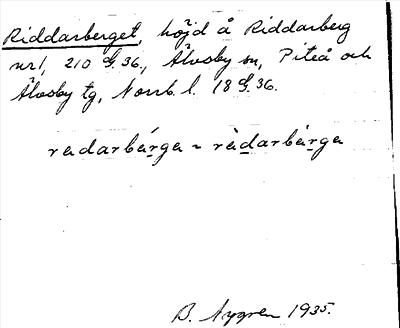 Riddarberget, höjd å Riddarberg
nr 1, 210 G. 36., Älvsby sn, Piteå och
Älvsby tg, Norrb. l. 18 G. 36.
radarbárga ~ ràdarbárga
B. Nygren 1935.